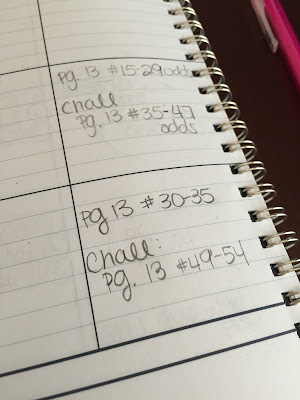 pg. 13 #15-29 odds
Chall:
pg. 13 #35-47
odds
pg 13 #30-35
Chall:
pg. 13 #49-54